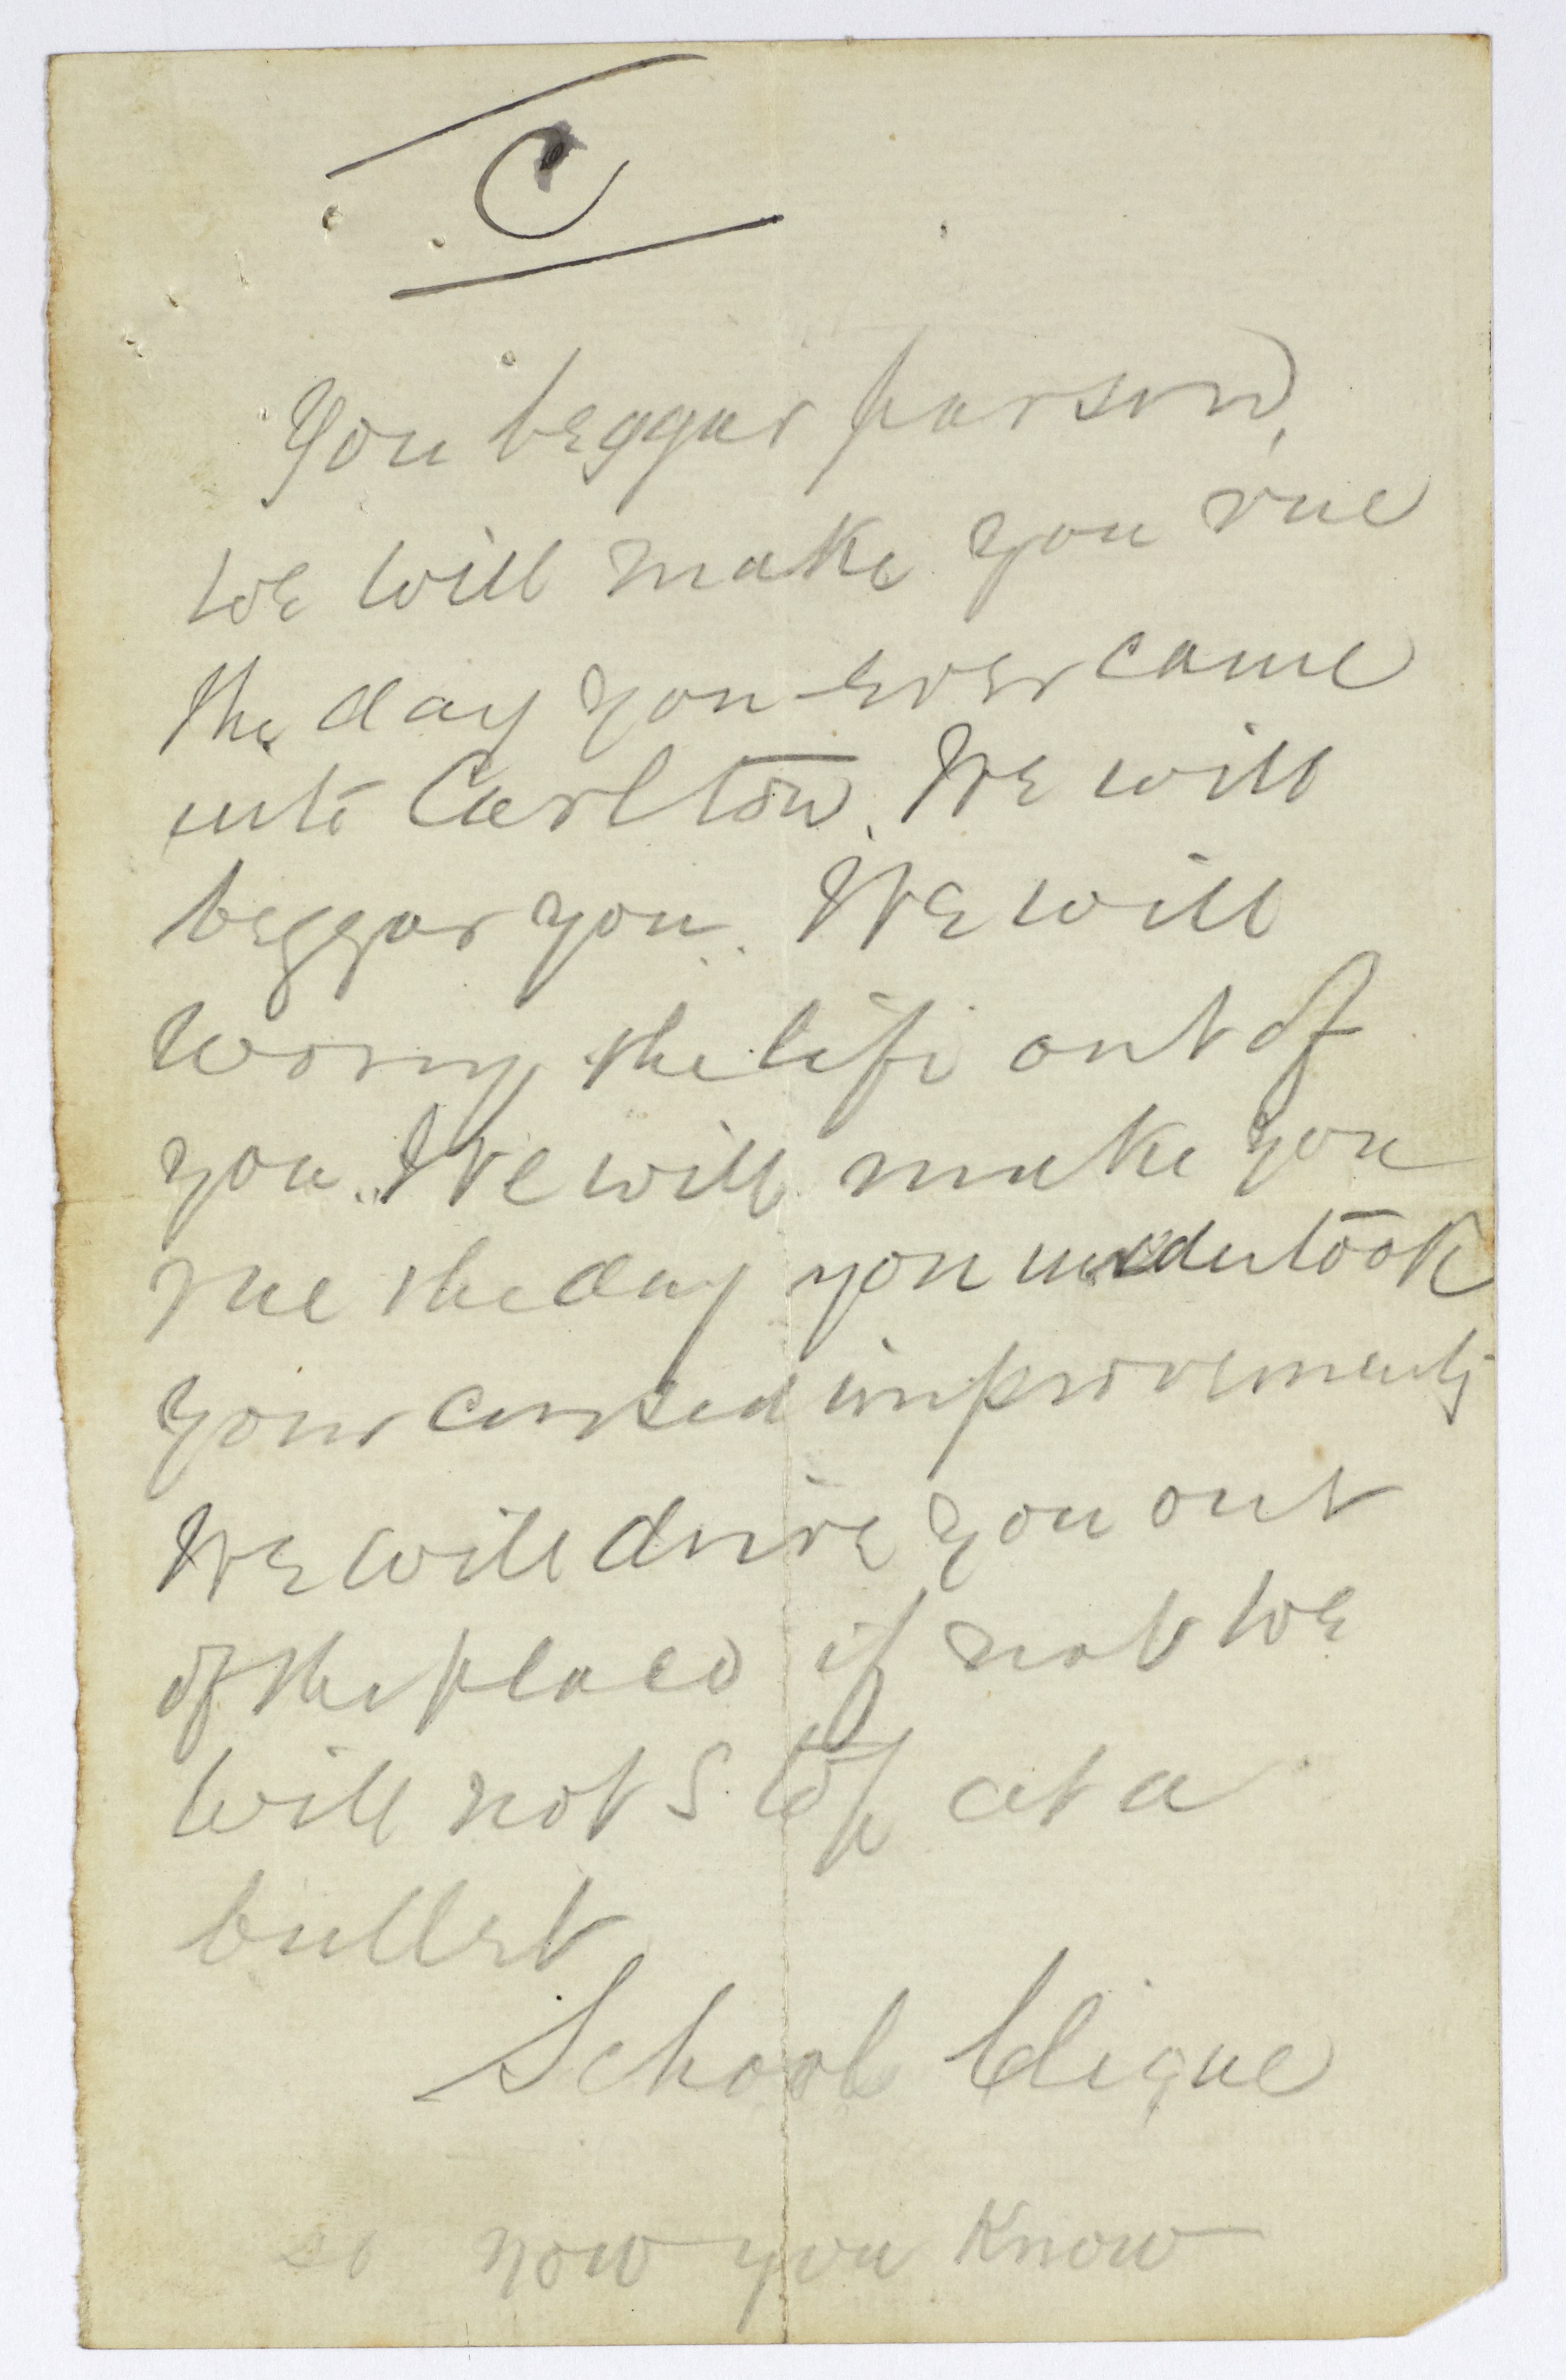 C
You beggar parson,
we will make you rue
the day you ever came
into Carlton. We will
beggar you. We will
worry the life out of
you. We will make you
rue the day you undertook
your cursed improvements
We will drive you out
of the place if not we
will not stop at a
bullet
School Clique
so now you know